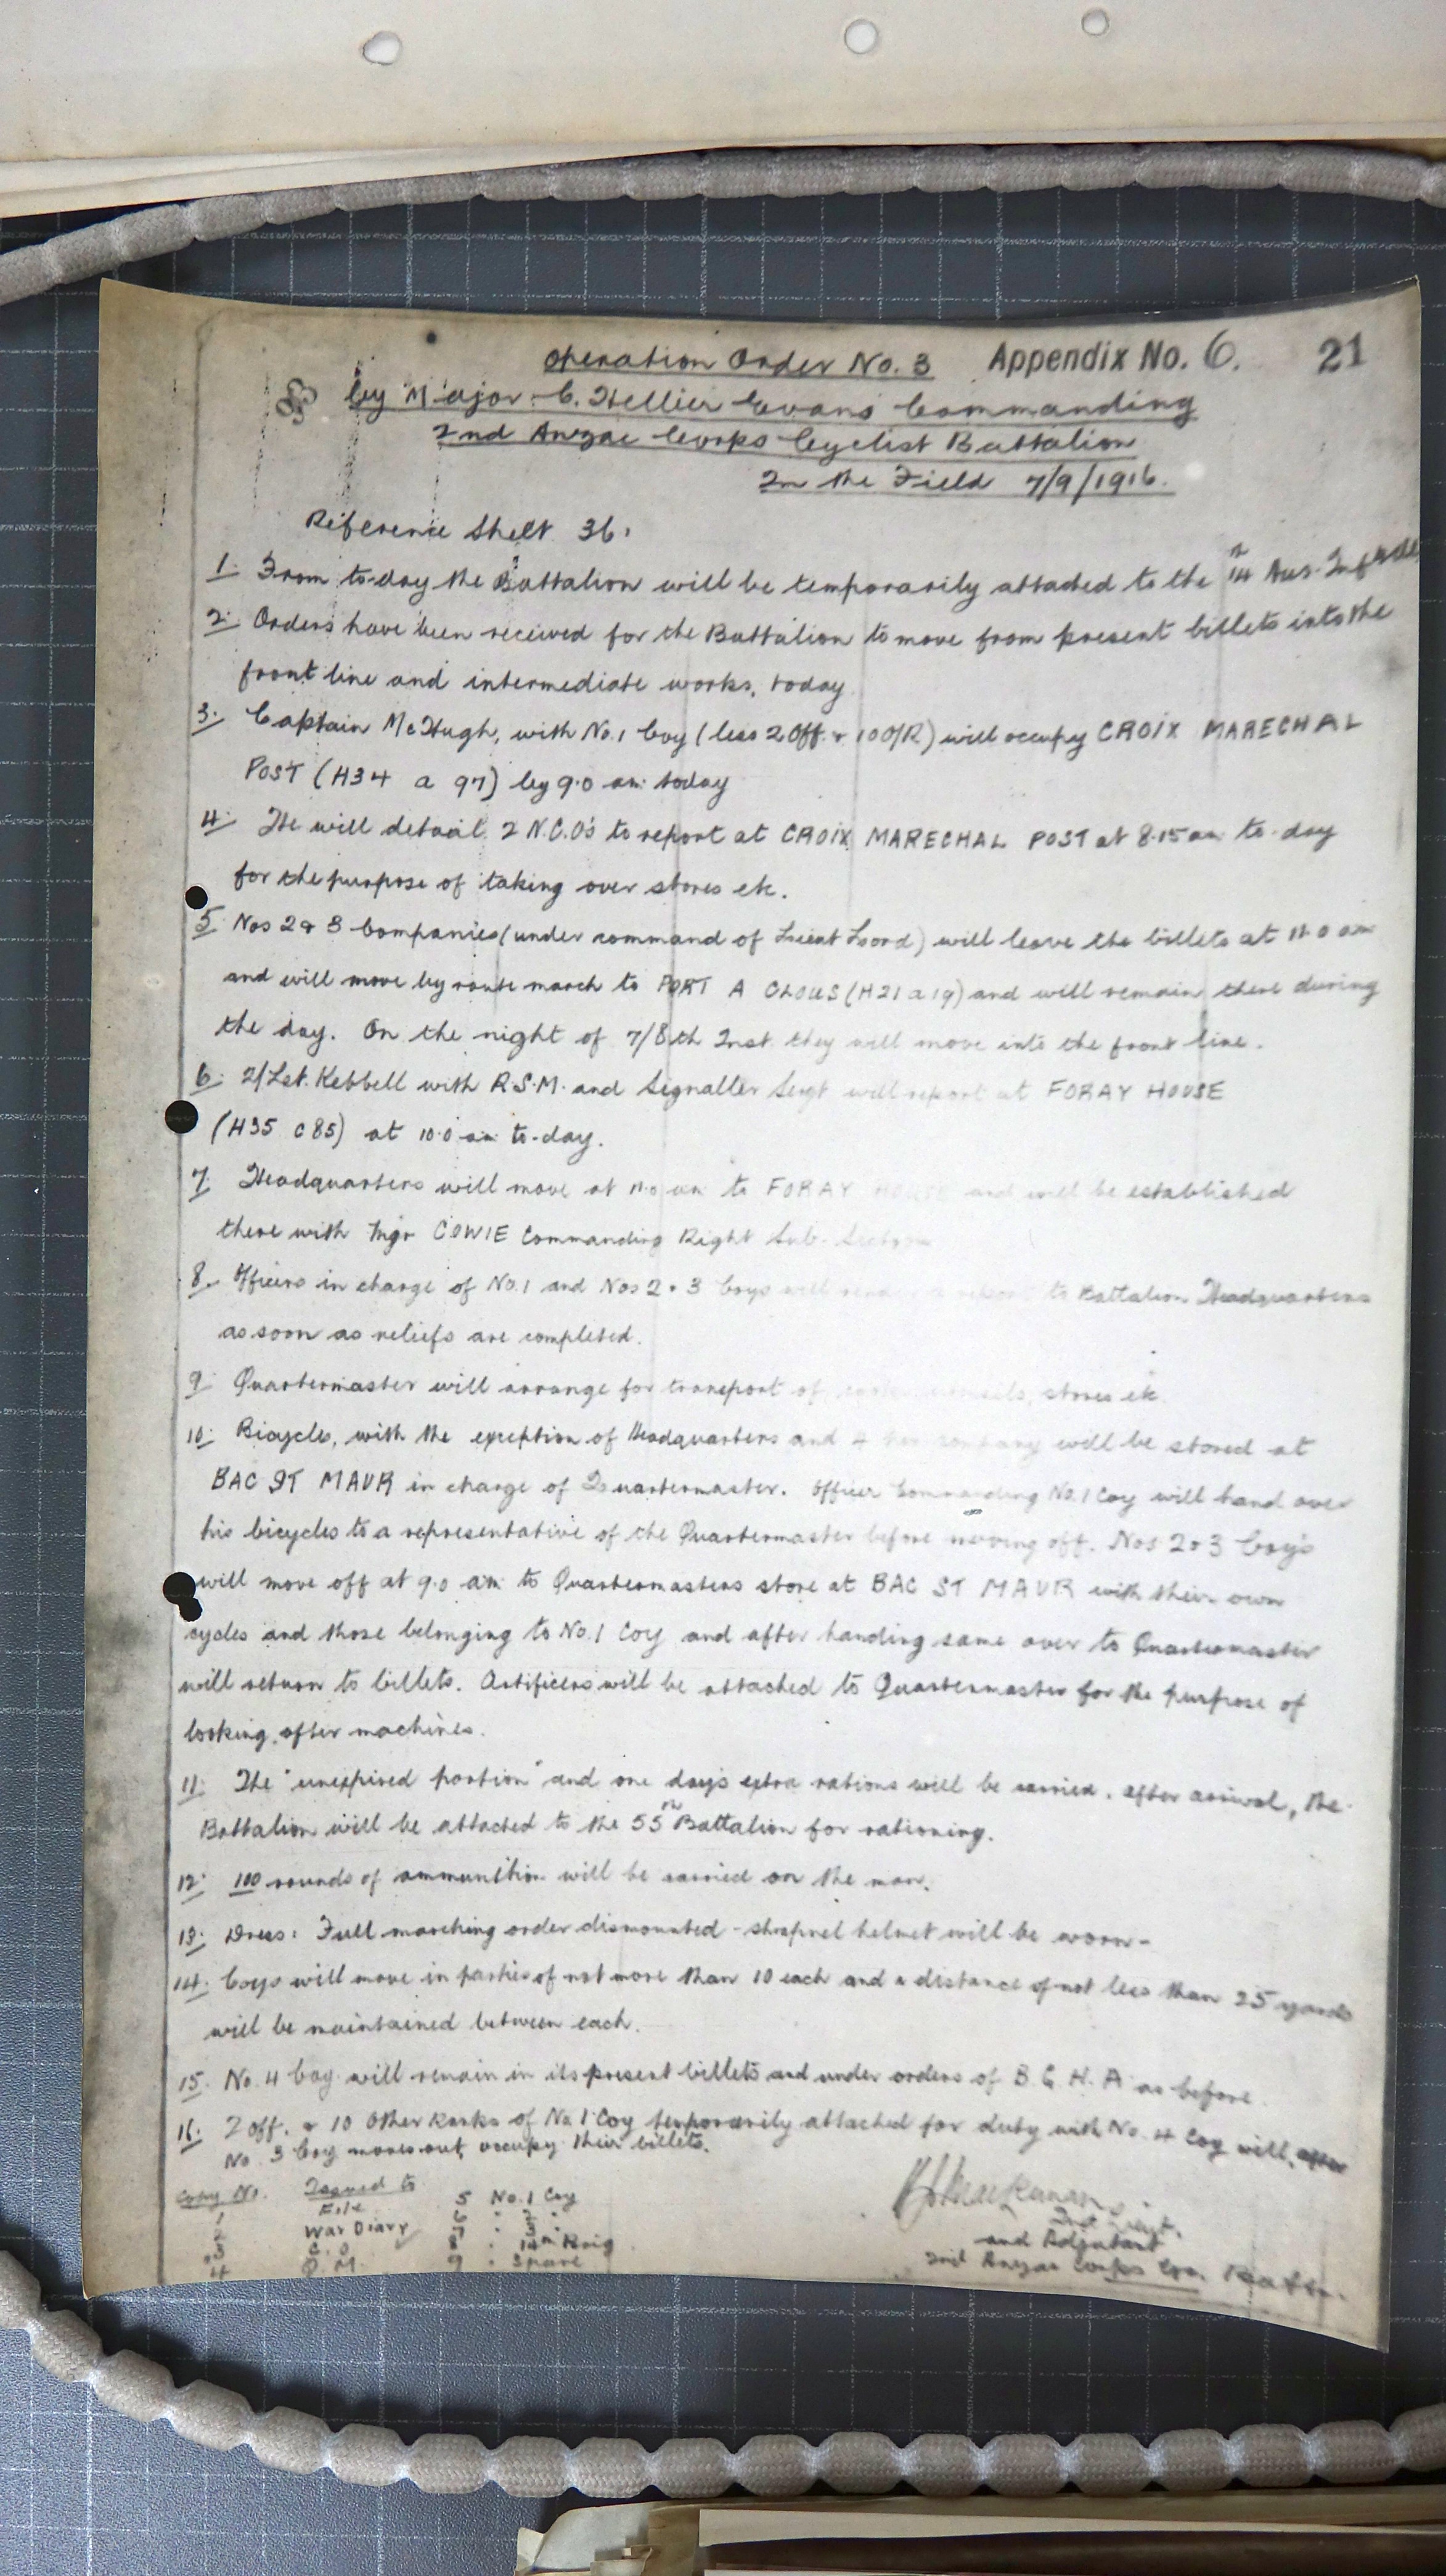 Operation Order No. 3 Appendix No. 6. 21
by Major C. Hellier Evans Commanding
2nd Anzac Corps Cyclist Battalion
In the Field 7/9/1916.
Reference Sheet 36.
1. From to-day the Battalion will be temporarily attached to the 14th Aus. Inf
2. Orders have been received for the Battalion to move from present billets into the
front line and intermediate works, today
3. Captain McHugh, with No. 1 Coy (less 2 Off. & 10 O/R) will occupy CROIX MARECHAL
POST (H34 a 97) by 9.0 am today
4. He will detail 2 N.C.O's to report at CROIX MARECHAL POST at 8.15 am to-day
for the purpose of taking over stores etc.
5. Nos 2 & 3 Companies (under command of Lieut Lord) will leave the billets at 11.0 am
and will move by route march to PORT A CLOUS (H21 a 19) and will remain there during
the day. On the night of 7/8th Inst. they will move into the front line.
6. 2/Lt. Kebbell with R.S.M. and Signaller Sergt will report at FORAY HOUSE
(H35 c 85) at 10.0 am to-day.
7. Headquarters will move at 11.0 am to FORAY HOUSE and will be established
there with Mjr COWIE Commanding Right Sub-Section
8. Officers in charge of No. 1 and Nos 2 & 3 Coys will render a report to Battalion Headquarters
as soon as reliefs are completed.
9. Quartermaster will arrange for transport of stores etc
10. Bicycles, with the exception of Headquarters and 4 company will be stored at
BAC ST MAUR in charge of Quartermaster. Officer Commanding No. 1 Coy will hand over
his bicycles to a representative of the Quartermaster before moving off. Nos 2 & 3 Coys
will move off at 9.0 am to Quartermasters store at BAC ST MAUR with their own
cycles and those belonging to No. 1 Coy and after handing same over to Quartermaster
will return to billets. Artificers will be attached to Quartermaster for the purpose of
looking after machines.
11. The "unexpired portion" and one day's extra rations will be carried. After arrival, the
Battalion will be attached to the 55th Battalion for rationing.
12. 100 rounds of ammunition will be carried on the man.
13. Dress: Full marching order dismounted - shrapnel helmet will be worn -
14. Coys will move in parties of not more than 10 each and a distance of not less than 25 yards
will be maintained between each.
15. No. 4 Coy will remain in its present billets and under orders of B.G.H.A as before.
16. 2 Off. & 10 Other Ranks of No 1 Coy temporarily attached for duty with No. 4 Coy will, after
No. 3 Coy moves out, occupy their billets.
Copy No. Issued to
1 File 5 No. 1 Coy
2 War Diary 6 " 2 "
3 C.O. 7 " 3 "
4 Q.M. 8 " 14th Brig
9 " Spare
2nd Lieut.
and Adjutant
2nd Anzac Corps Cyc. Battn.